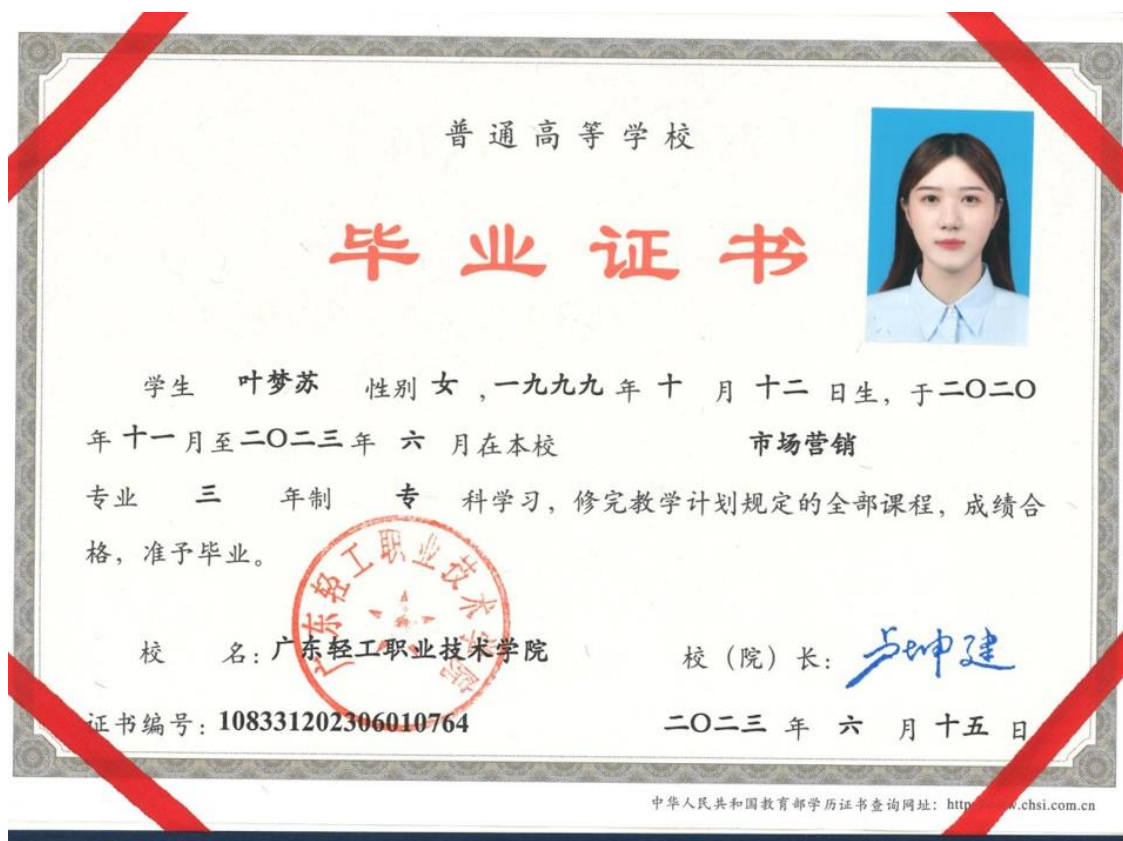 普通高等学校
毕业证书
学生 叶梦苏 性别 女 ,一九九九 年 十 月 十二 日生, 于二〇二〇
年 十一 月至二〇二三年 六 月在本校 市场营销
专业 三 年制 专 科学习, 修完教学计划规定的全部课程, 成绩合
格, 准予毕业。
广东轻工职业技术学院
校 名: 广东轻工职业技术学院 校 (院) 长: 卢坤建
证书编号: 108331202306010764 二〇二三 年 六 月 十五 日
中华人民共和国教育部学历证书查询网址: http w.chsi.com.cn